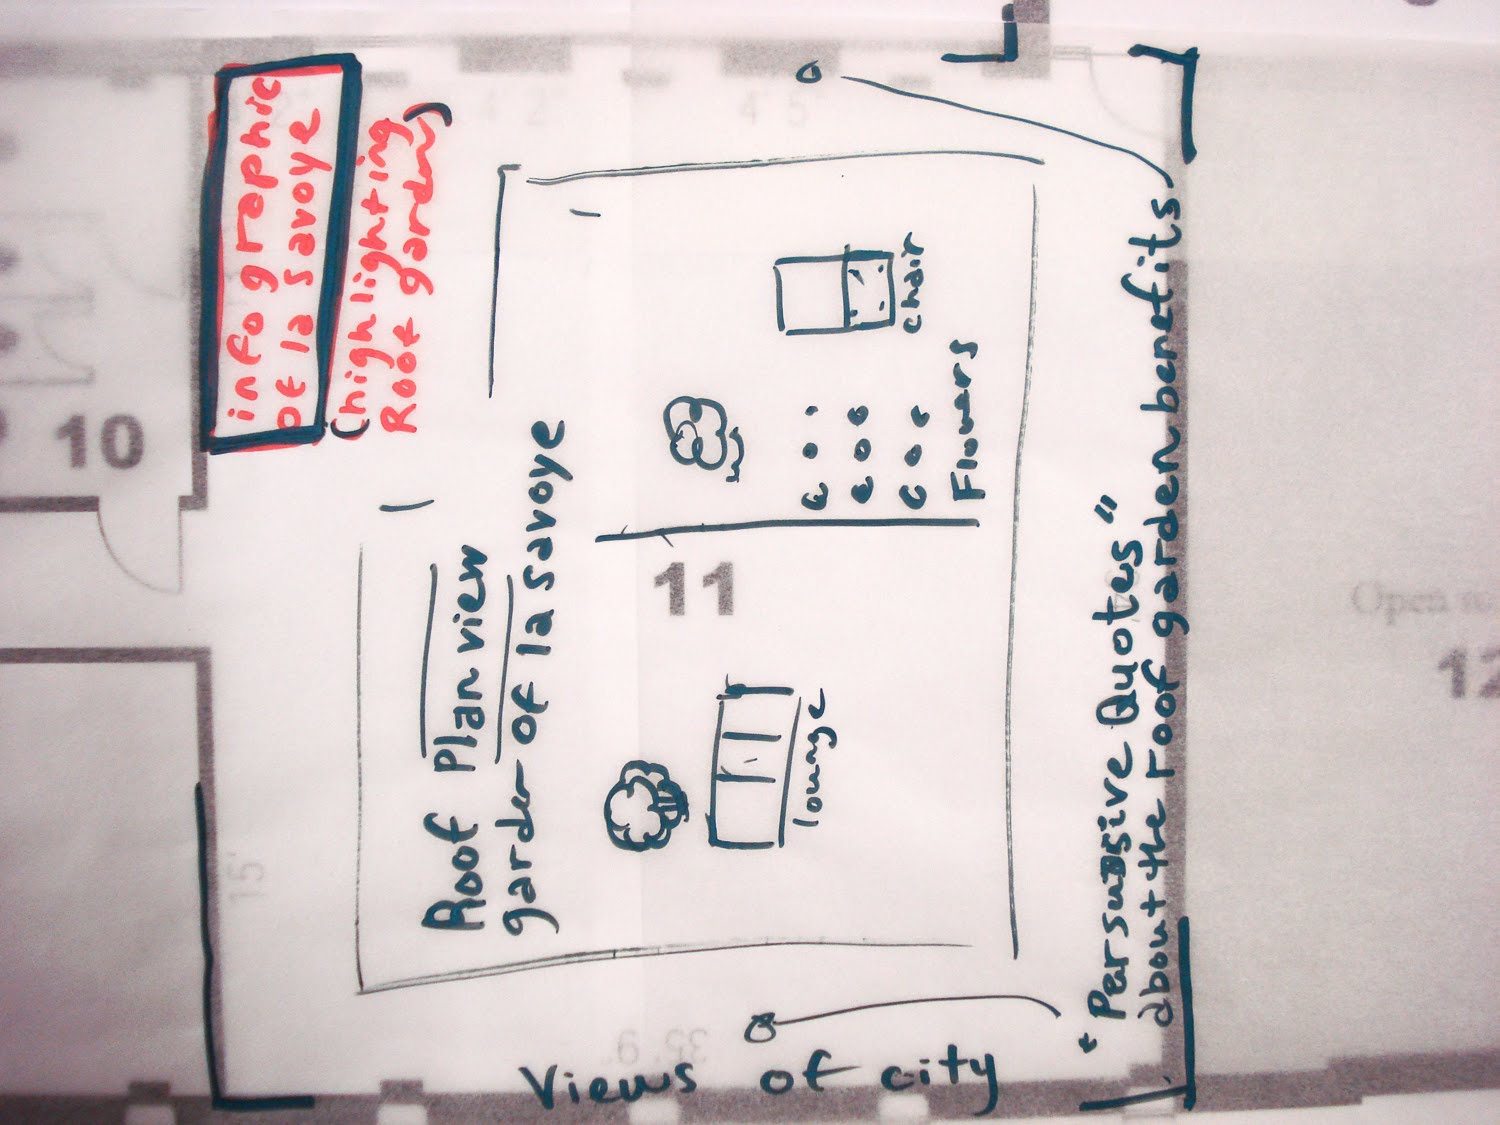 info graphic
of la savoye
(highlighting
Roof garden)
10
Roof Plan view
garden of la savoye
11
lounge
chair
Flowers
"Persuasive Quotes"
about the roof garden benefits
Views of city
4 2
4 5
15'
35'.9"
Open to
12